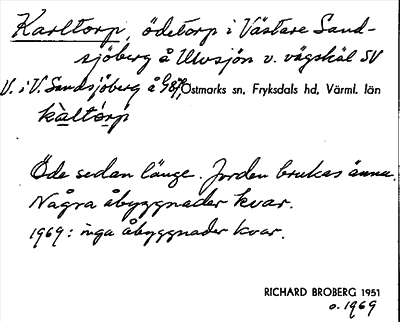 Karltorp, ödetorp i Västare Sand-
sjöberg å Utvsjön v. vägskäl SV
V. i V. Sandsjöberg å Östmarks sn, Fryksdals hd, Värml. län
kàltórp
Öde sedan länge. Jorden brukas ännu.
Några åbyggnader kvar.
1969: inga åbyggnader kvar.
RICHARD BROBERG 1951
o. 1969